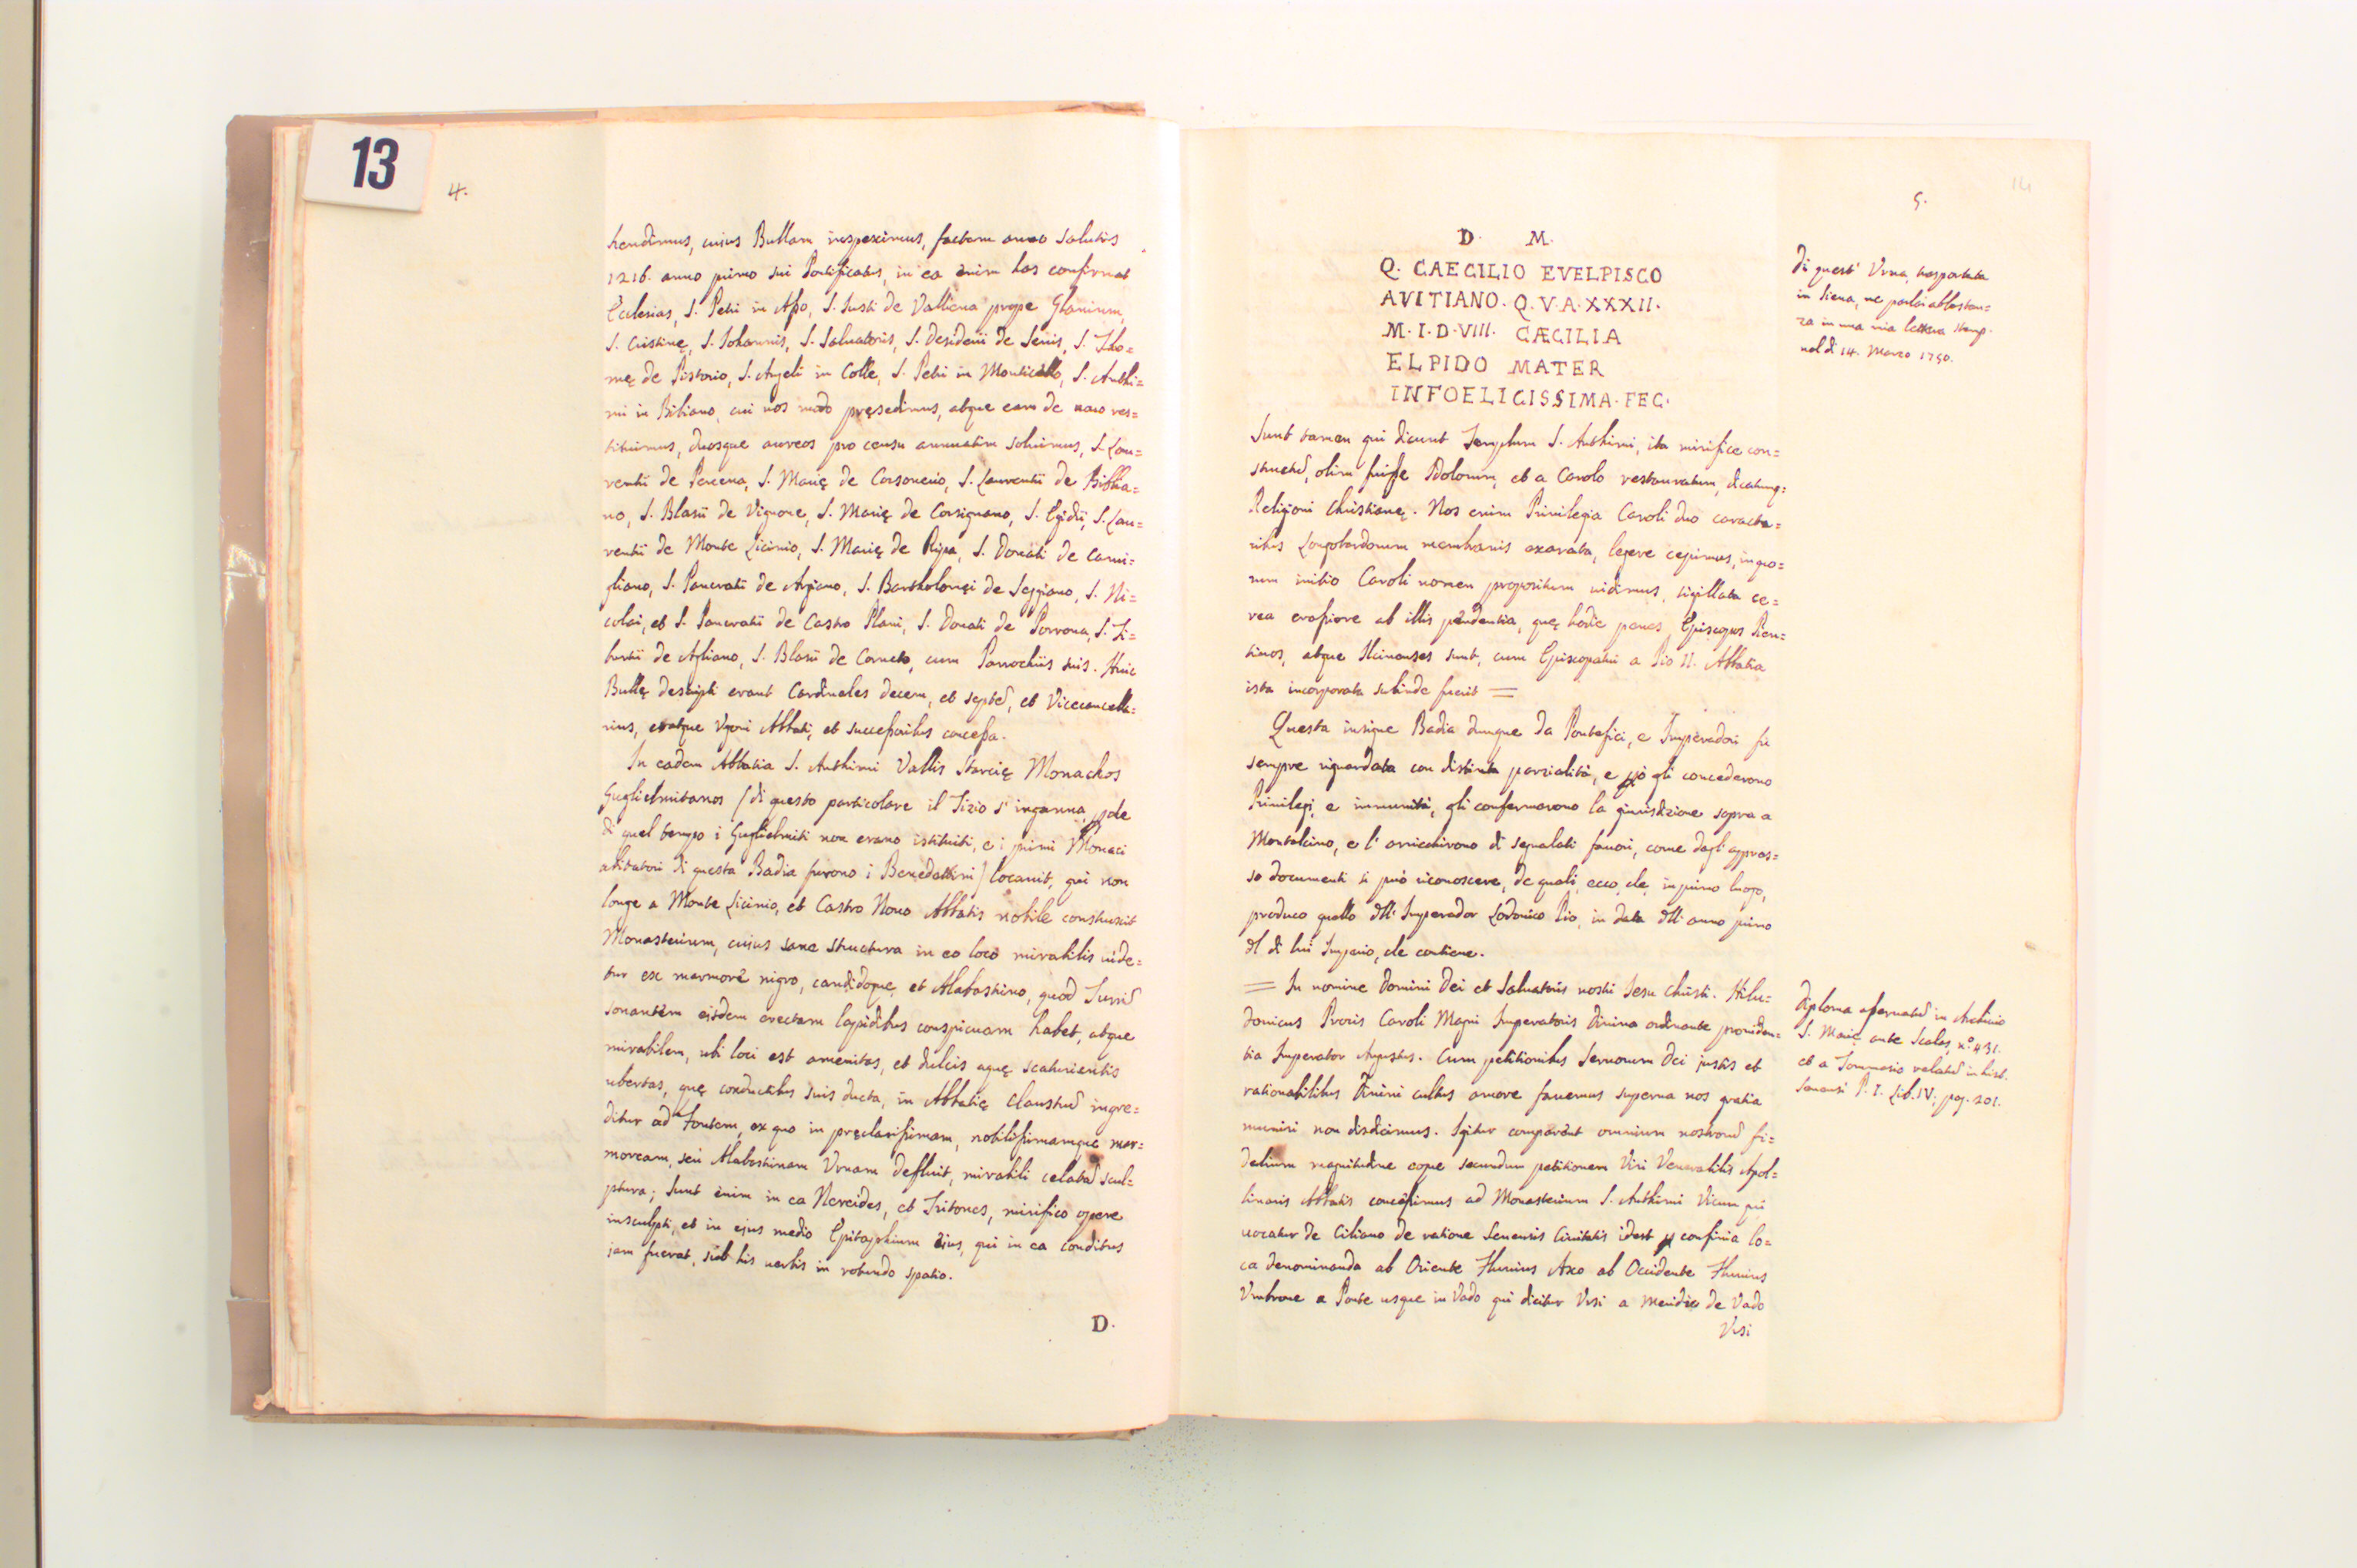 13
4.
hendimus, cuius Bullam inspeximus, factam anno salutis
1216. anno primo sui Pontificatus, in ea enim has confirmat
Ecclesias, S. Petri in Asso, S. Justi de Vallicua prope Glanium,
S. Cristinę, S. Johannis, S. Saluatoris, S. Desiderii de Senis, S. Tho=
mę de Pistorio, S. Angeli in Colle, S. Petri in Monticello, S. Anthi=
mi in Bibiano, cui nos modo pręsedimus, atque eam de nouo res=
tituimus, duosque aureos pro censu annuatim soluimus, S. Lau=
rentii de Percena, S. Marię de Corsoneio, S. Laurentii de Bibbia=
no, S. Blasii de Vignone, S. Marię de Corsignano, S. Egidii, S. Lau=
rentii de Monte Licinio, S. Marię de Ripa, S. Donati de Cami=
gliano, S. Pancratii de Argiano, S. Bartholomęi de Seggiano, S. Ni=
colai, et S. Pancratii de Castro Plani, S. Donati de Porrona, S. Ti=
burtii de Agliano, S. Blasii de Corneto, cum Parrochiis suis. Huic
Bullę descripti erant Cardinales decem, et septem, et Vicecancella=
rius, eratque Vgoni Abbati, et successoribus concessa.
In eadem Abbatia S. Anthimi Vallis Starcię Monachos
Guglielmitanos (di questo particolare il Tizio s'inganna, pche
di quel tempo i Guglielmiti non erano istituiti, e i primi Monaci
abitatori di questa Badia furono i Benedettini) locauit, qui non
longe a Monte Licinio, et Castro Nouo Abbatis nobile construxit
Monasterium, cuius sane structura in eo loco mirabilis uide=
tur ex marmore nigro, candidoque, et Alabastrino, quod Turrim
sonantem eisdem erectam lapidibus conspicuam habet, atque
mirabilem, ubi loci est amenitas, et dulcis aquę scaturientis
ubertas, quę conductibus suis ducta, in Abbatię claustrum ingre=
ditur ad Fontem, ex quo in pręclarissimam, nobilissimamque mar=
moream, seu Alabastrinam Vrnam defluit, mirabili celatam scul=
ptura; sunt enim in ea Nereides, et Tritones, mirifico opere
insculpti, et in ejus medio Epitaphium ejus, qui in ea conditus
jam fuerat, sub his uerbis in rotundo spatio.
D.
5.
D. M.
Q. CAECILIO EVELPISCO
AVITIANO. Q. V. A. XXXII.
M. I. D. VIII. CÆCILIA
ELPIDO MATER
INFOELICISSIMA. FEC.
Di quest' Vrna, trasportata
in Siena, ne parlai abbastan=
za in una mia lettera stamp.
nel dì 14. Marzo 1750.
Sunt tamen qui dicunt Templum S. Anthimi, ita mirifice con=
structum, olim fuisse Idolorum, et a Carolo restauratum, dicatumq:
Religioni Christianę. Nos enim Priuilegia Caroli duo caracte=
ribus Longobardorum membranis exarata, legere cepimus, in quo=
rum initio Caroli nomen propositum uidimus, sigillata ce=
rea erasiore ab illis pendentia, quę hodie penes Episcopos Pien=
tinos, atque Ilcinenses sunt, cum Episcopatui a Pio II. Abbatia
ista incorporata subinde fuerit =
Questa insigne Badia dunque da Pontefici, e Imperadori fu
sempre riguardata con distinta parzialità, e pciò gli concederono
Priuilegi, e immunità, gli confermarono la giurisdizione sopra a
Montalcino, e l' arricchirono di segnalati fauori, come dagl' appres=
so documenti si può riconoscere, de quali, ecco che, in primo luogo,
produco quello dell' Imperador Lodouico Pio, in data dell' anno primo
del di lui Imperio, che contiene.
= In nomine Domini Dei et Saluatoris nostri Jesu Christi. Hilu=
douicus Proris Caroli Magni Imperatoris Diuina ordinante prouiden=
tia Imperator Augustus. Cum petitionibus Seruorum Dei justis et
rationabilibus Diuini cultus amore fauemus superna nos gratia
muniri non disdicimus. Igitur compareat omnium nostrorum fi=
delium magnitudine eoque secundum petitionem Viri Venerabilis Apol=
linaris Abbatis concessimus ad Monasterium S. Anthimi Vicum qui
uocatur de Ciliano de ratione Senensis Ciuitatis idest p confinia lo=
ca denominanda ab Oriente Fluuius Axo ab Occidente Fluuius
Vmbrone a Ponte usque in Vado qui dicitur Vrsi a Meridie de Vado
Vrsi
Diploma asseruatum in Archiuio
S. Marię ante Scalas, n.º 431.
et a Tommasio relatum in hist.
Senensi P. I. Lib. IV, pag. 201.